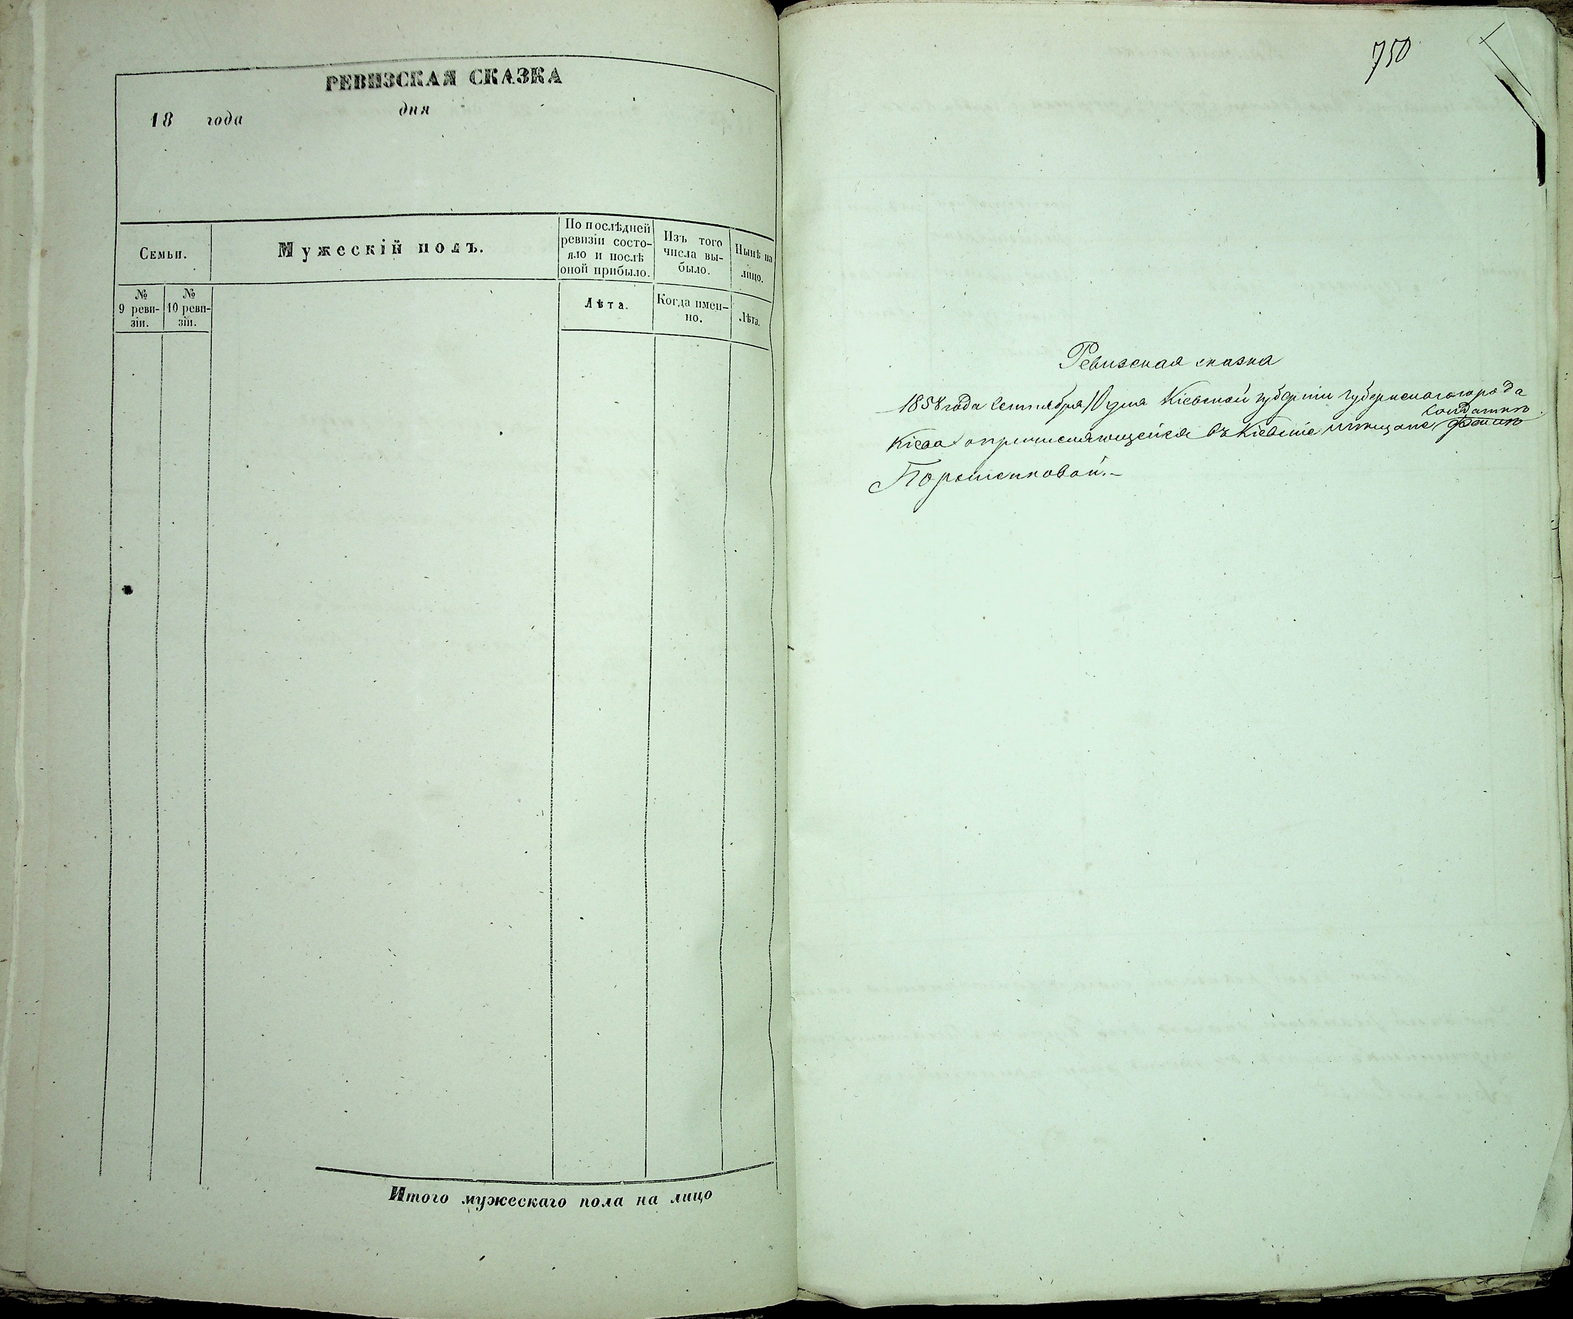 РЕВИЗСКАЯ СКАЗКА
18 года дня
Семьи.
Мужескій полъ.
По послѣдней
ревизіи состо-
яло и послѣ
оной прибыло.
Изъ того
числа вы-
было.
Нынѣ на
лицо.
№
9 реви-
зіи.
№
10 реви-
зіи.
Лѣта.
Когда имен-
но.
Лѣта.
Итого мужескаго пола на лицо
750
Ревизская сказка
1858 года Сентября 10 дня Кіевской губерніи губернскаго города
солдатки
Кіева о причисляющейся въ Кіевскіе мѣщане